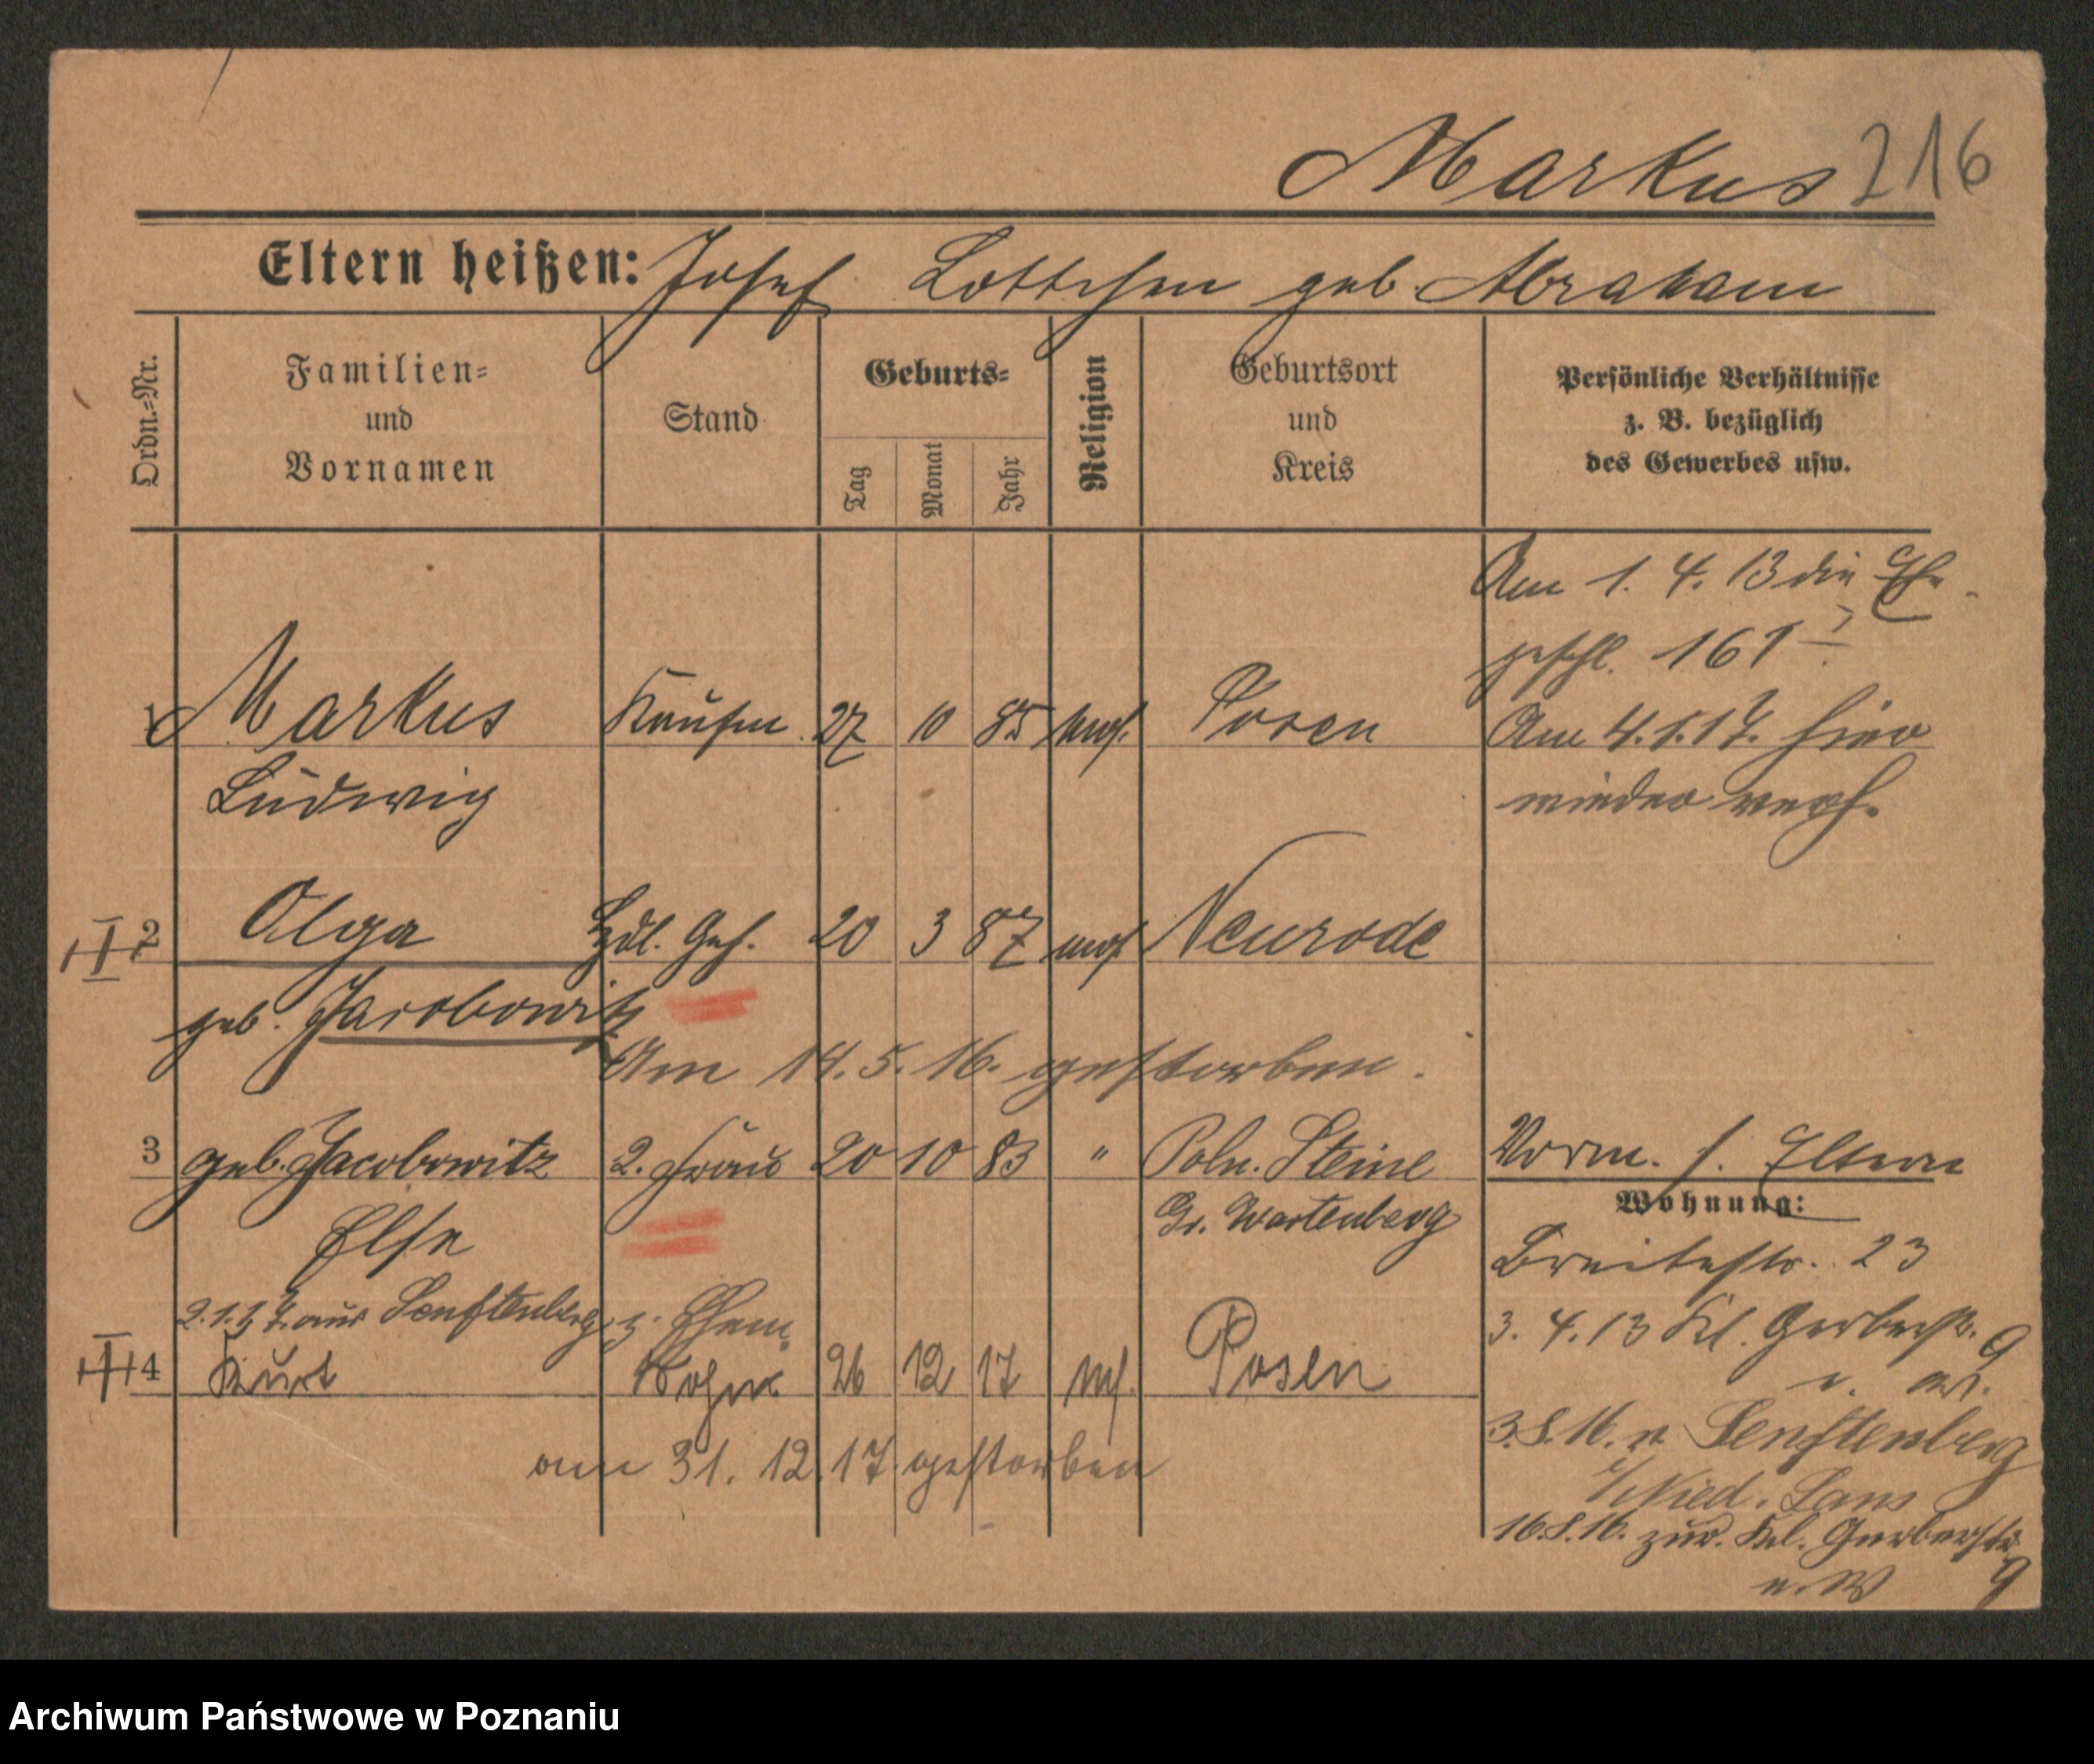 Markus 216
Eltern heißen: Josef Lottchen geb. Abraham
Ordn.=Nr.
Familien=
und
Vornamen
Stand
Geburts=
Tag
Monat
Jahr
Religion
Geburtsort
und
Kreis
Persönliche Verhältnisse
z. B. bezüglich
des Gewerbes usw.
Am 1. 4. 13 die Ehe
geschl.
1 Markus Kaufm. 27 10 85 mos. Posen
Ludwig
Am 4.1.17. hier
wieder verh.
2 Olga Hdl. Geh. 20 3 87 mos. Neurode
geb. Jacobowitz
Am 14. 5. 16. gestorben.
3 geb. Jacobowitz 2. Frau 20 10 83 " Poln. Steine
Else Gr. Wartenberg
Vorm. s. Eltern
Wohnung:
Breitestr. 23
2.1.17. aus Senftenberg z. Ehem.
3. 4. 13 Kl. Gerberstr. 9
4 Kurt Sohn 26 12 17 m. Posen
am 31. 12. 17 gestorben
3.8.16. n. Senftenberg
i/Nied. Laus
16.8.16. zur. Kl. Gerberstr.
9
n. W
Archiwum Państwowe w Poznaniu